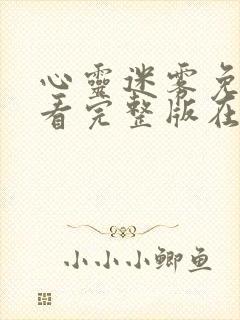 心靈迷雾免
看完整版在
小小小鲫鱼